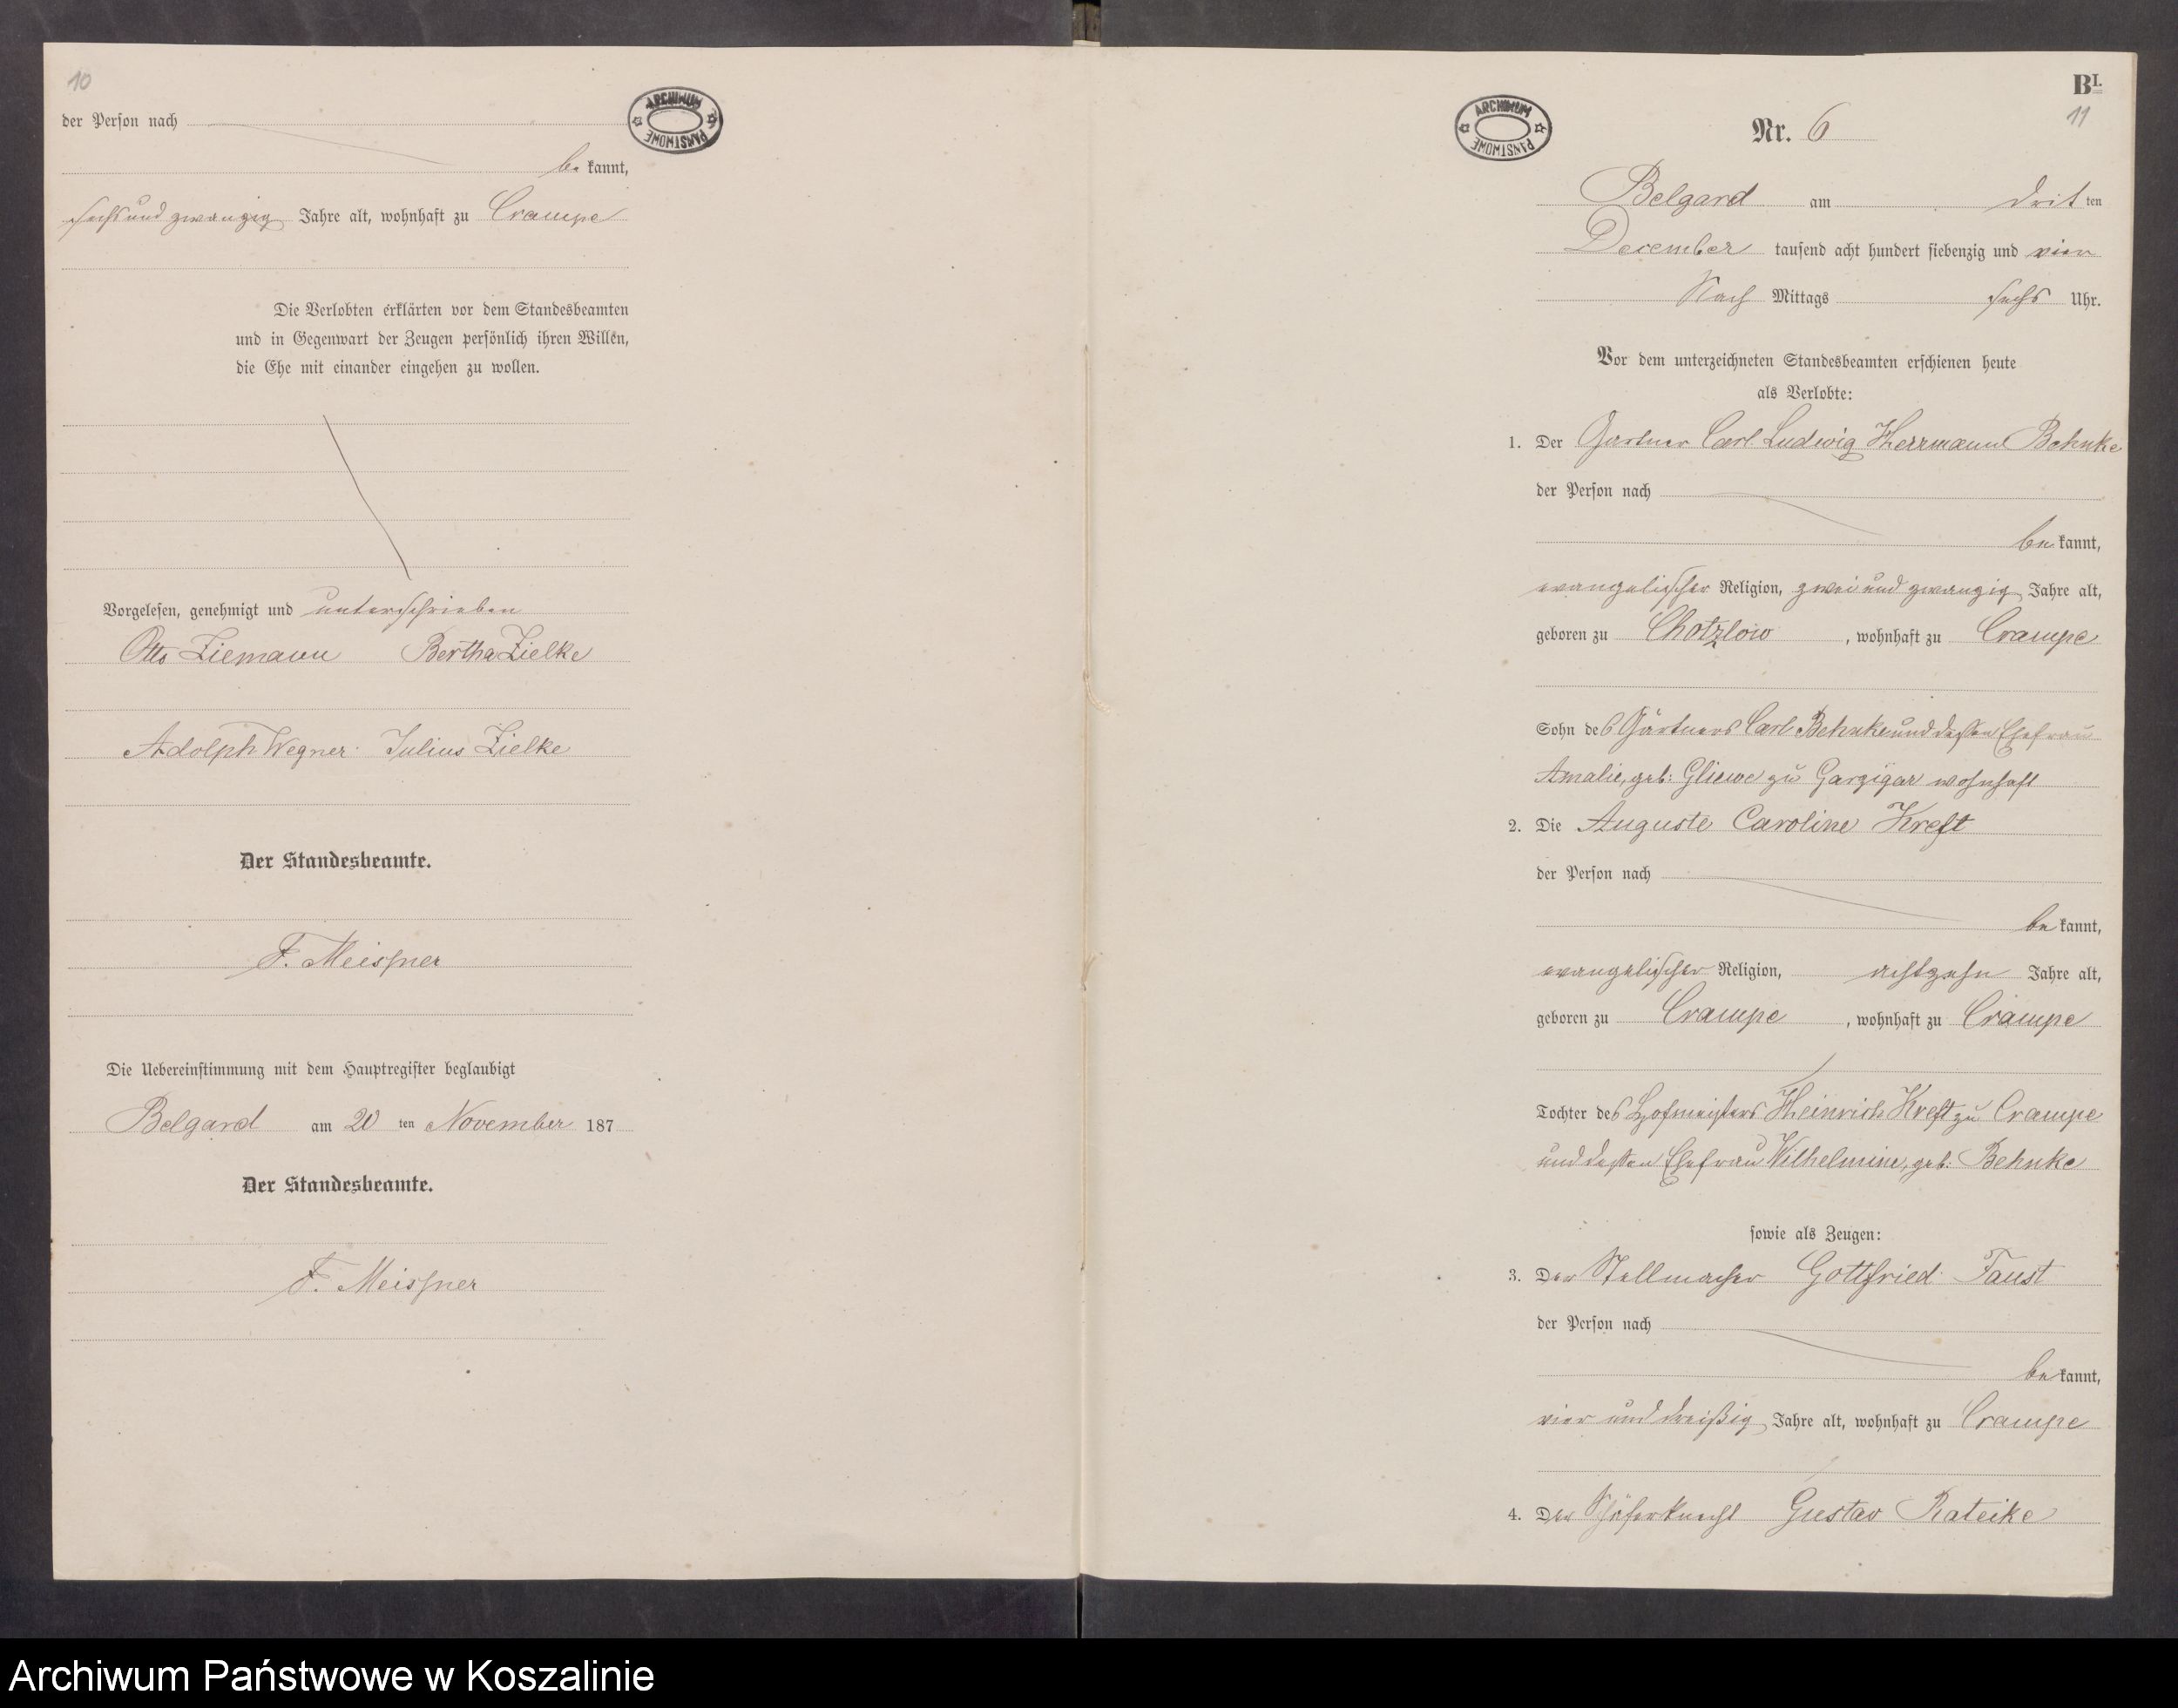 10
der Person nach
be kannt,
sechs und zwanzig Jahre alt, wohnhaft zu Crampe
Die Verlobten erklärten vor dem Standesbeamten
und in Gegenwart der Zeugen persönlich ihren Willen,
die Ehe mit einander eingehen zu wollen.
Vorgelesen, genehmigt und unterschrieben
Otto Ziemann Bertha Zielke
Adolph Wegner. Julius Zielke
Der Standesbeamte.
F. Meissner
Die Uebereinstimmung mit dem Hauptregister beglaubigt
Belgard am 20 ten November 187
Der Standesbeamte.
F. Meissner
ARCHIWUM PAŃSTWOWE
ARCHIWUM PAŃSTWOWE
BI.
11
Nr. 6
Belgard am drit ten
December tausend acht hundert siebenzig und vier
Nach Mittags sechs Uhr.
Vor dem unterzeichneten Standesbeamten erschienen heute
als Verlobte:
1. Der Gärtner Carl Ludwig Herrmann Behnke
der Person nach
be kannt,
evangelischer Religion, zwei und zwanzig Jahre alt,
geboren zu Chotzlow, wohnhaft zu Crampe
Sohn des Gärtners Carl Behnke und dessen Ehefrau
Amalie, geb: Gliewe zu Garzigar wohnhaft
2. Die Auguste Caroline Kreft
der Person nach
be kannt,
evangelischer Religion, achtzehn Jahre alt,
geboren zu Crampe, wohnhaft zu Crampe
Tochter des Hofmeisters Heinrich Kreft zu Crampe
und dessen Ehefrau Wilhelmine, geb: Behnke
sowie als Zeugen:
3. Der Stellmacher Gottfried Faust
der Person nach
be kannt,
vier und dreißig Jahre alt, wohnhaft zu Crampe
4. Der Schäferknecht Gustav Rateike
Archiwum Państwowe w Koszalinie